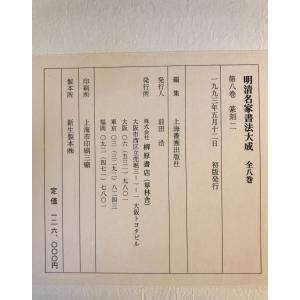 明清名家書法大成 全八巻
第八巻 篆刻二
一九九三年五月十二日 初版発行
編集 上海書画出版社
発行人 前田浩
発行所 株式会社 柳原書店(草林舎)
大阪市西区立売堀三―一―一 大阪トヨタビル
大阪 〇六(五三二)九八〇一
東京 〇三(三二九二)八二四三
福岡 〇九二(四七一)七八七〇
印刷所 上海市印刷三廠
製本所 新生製本㈱
定価 一二六、〇〇〇円